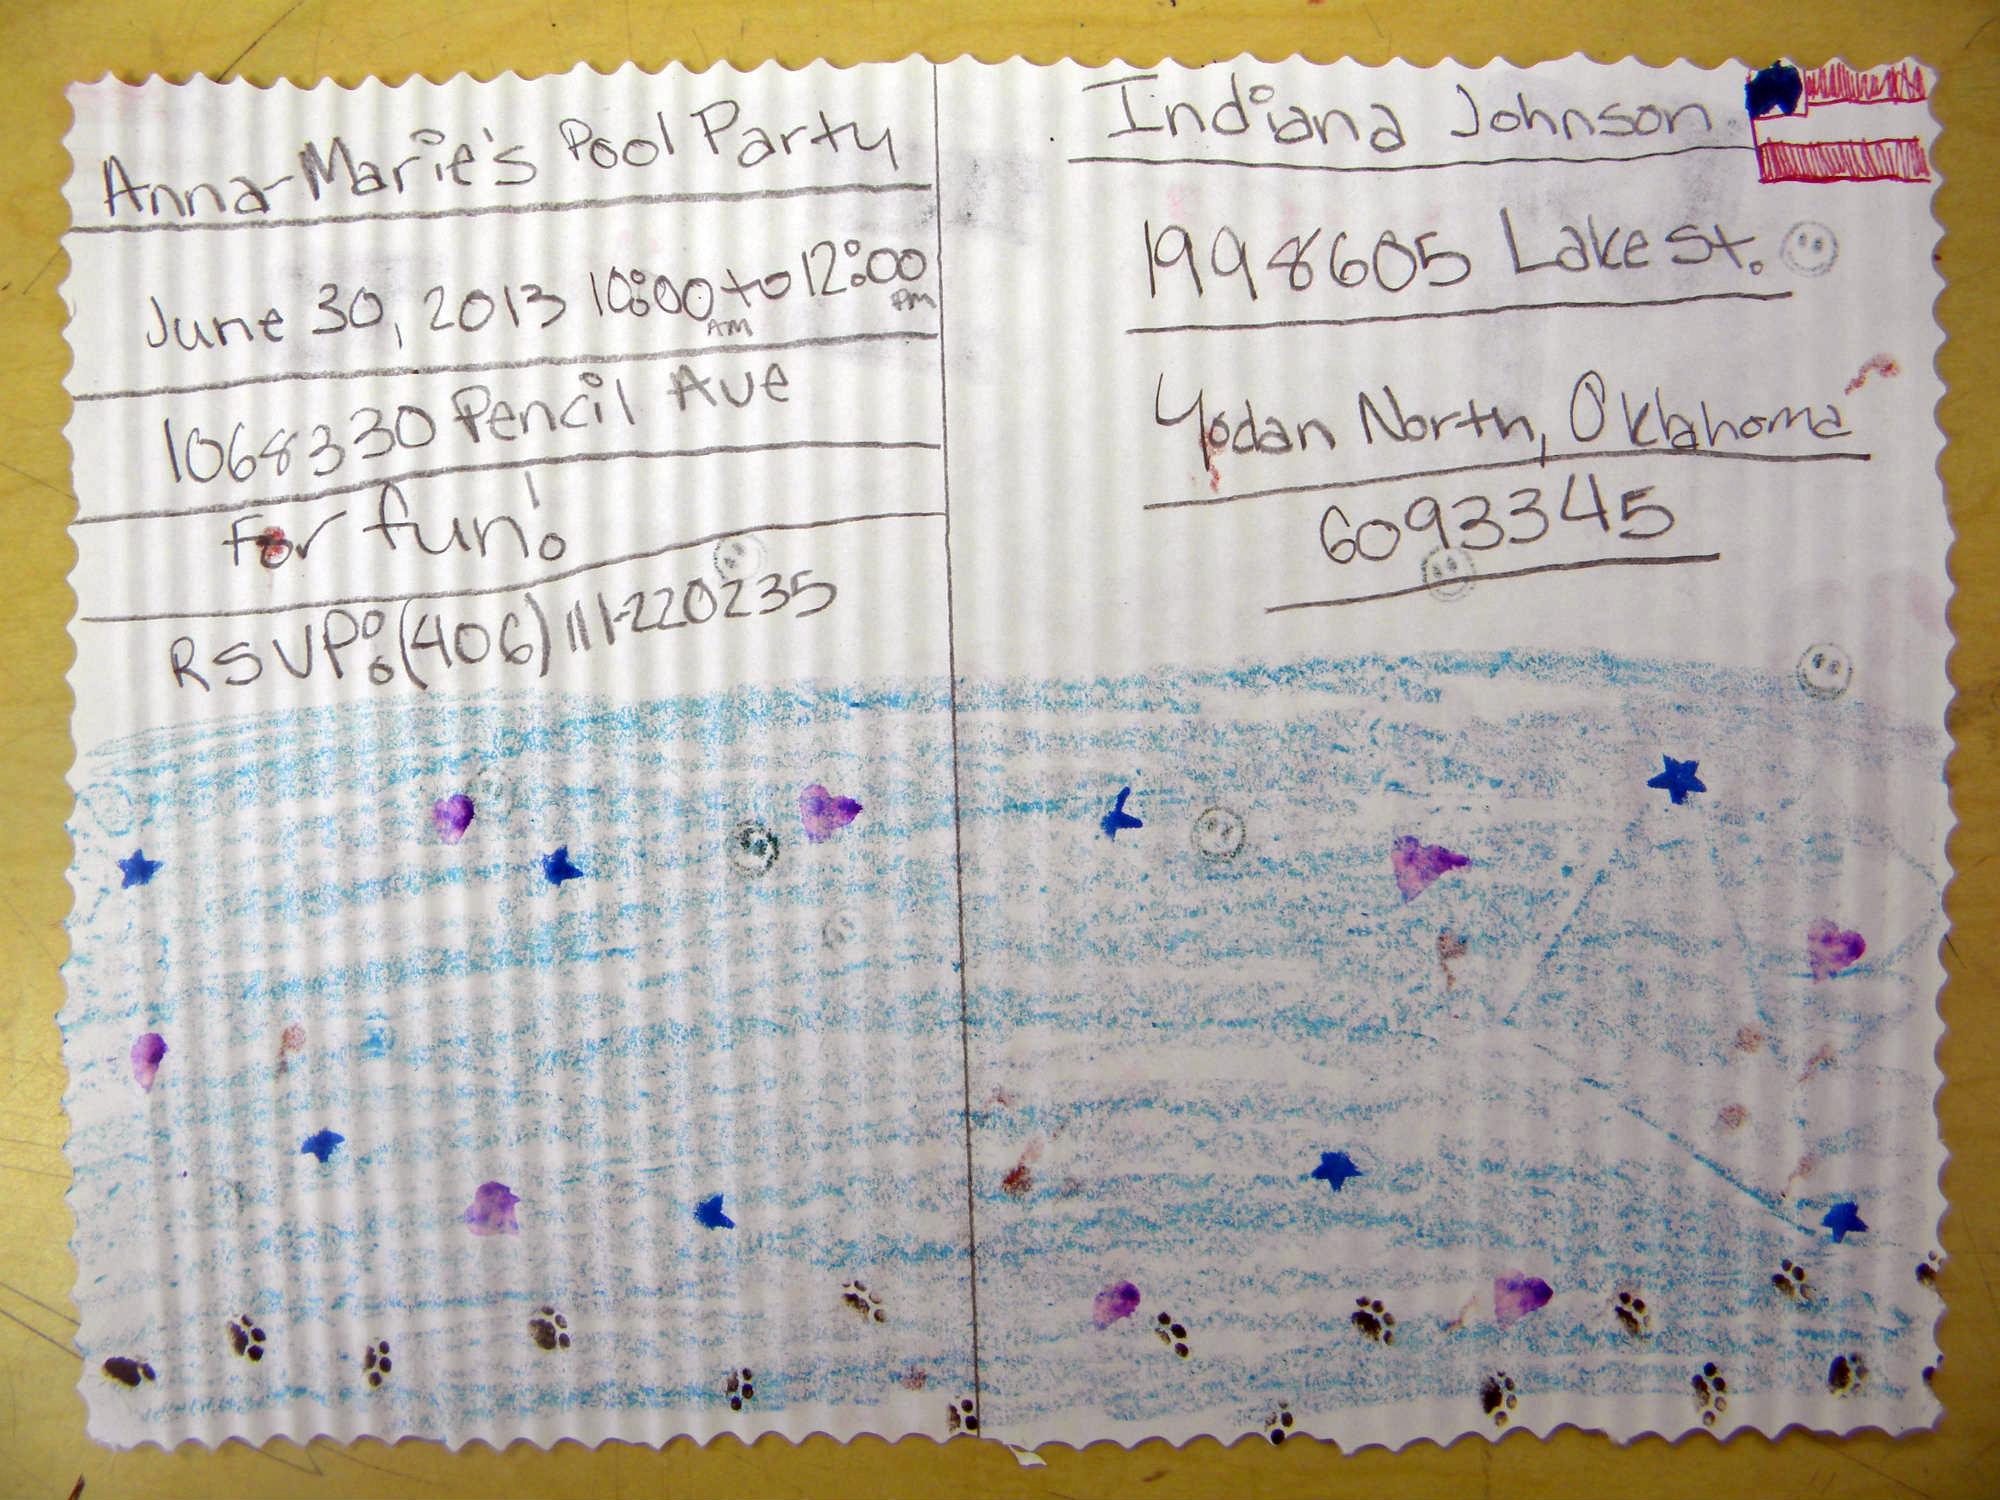 Anna-Marie's Pool Party
June 30, 2013 10:00 AM to 12:00 PM
1068330 Pencil Ave
For fun!
RSVP: (406) 111-220235
Indiana Johnson
1998605 Lake St.
Yodan North, Oklahoma
6093345